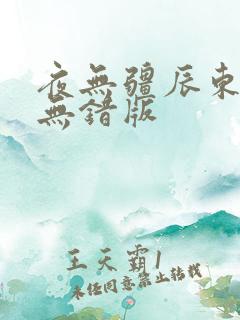 夜無疆辰東
無錯版
王天霸1
未經同意禁止轉載